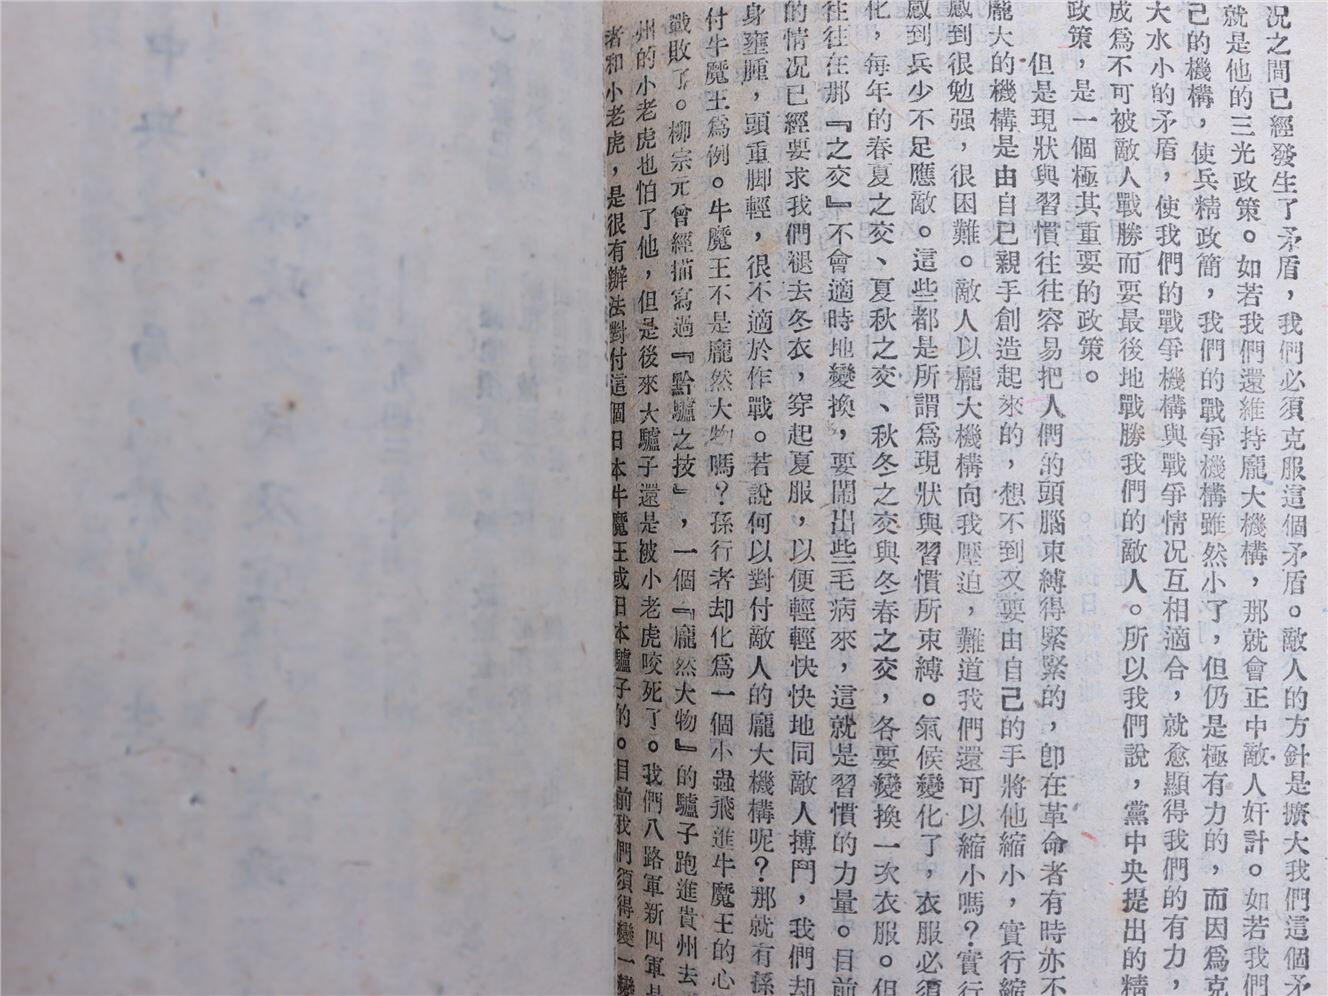 況之間已經發生了矛盾，我們必須克服這個矛盾。敵人的方針是擴大我們這個矛
就是他的三光政策。如若我們還維持龐大機構，那就會正中敵人奸計。如若我們
己的機構，使兵精政簡，我們的戰爭機構雖然小了，但仍是極有力的，而因爲克
大水小的矛盾，使我們的戰爭機構與戰爭情況互相適合，就愈顯得我們的有力，
成爲不可被敵人戰勝而要最後地戰勝我們的敵人。所以我們說，黨中央提出的精
政策，是一個極其重要的政策。
但是現狀與習慣往往容易把人們的頭腦束縛得緊緊的，卽在革命者有時亦不
龐大的機構是由自己親手創造起來的，想不到又要由自己的手將他縮小，實行縮
感到很勉强，很困難。敵人以龐大機構向我壓迫，難道我們還可以縮小嗎？實行
感到兵少不足應敵。這些都是所謂爲現狀與習慣所束縛。氣候變化了，衣服必須
化，每年的春夏之交、夏秋之交、秋冬之交與冬春之交，各要變換一次衣服。但
往往在那『之交』不會適時地變換，要鬧出些毛病來，這就是習慣的力量。目前
的情況已經要求我們褪去冬衣，穿起夏服，以便輕輕快快地同敵人搏鬥，我們却
身壅腫，頭重脚輕，很不適於作戰。若說何以對付敵人的龐大機構呢？那就有孫
付牛魔王爲例。牛魔王不是龐然大物嗎？孫行者却化爲一個小蟲飛進牛魔王的心
戰敗了。柳宗元曾經描寫過『黔驢之技』，一個『龐然大物』的驢子跑進貴州去
州的小老虎也怕了他，但是後來大驢子還是被小老虎咬死了。我們八路軍新四軍是
者和小老虎，是很有辦法對付這個日本牛魔王或日本驢子的。目前我們須得變一變